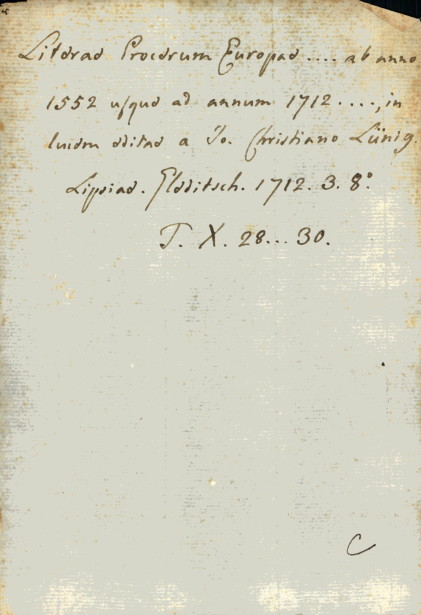 Literae Procerum Europae .... ab anno
1552 usque ad annum 1712 ...., in
lucem editae a Jo. Christiano Lünig.
Lipsiae. Gleditsch. 1712. 3. 8°.
T. X. 28... 30.
C